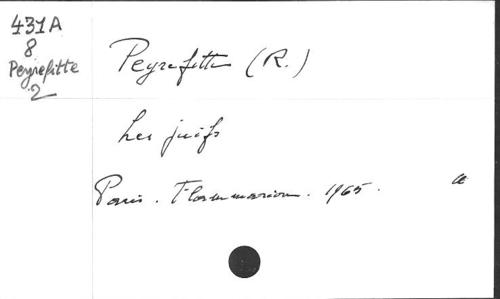 431A
8
Peyrefitte
2
Peyrefitte (R.)
Les juifs
Paris. Flammarion. 1965.